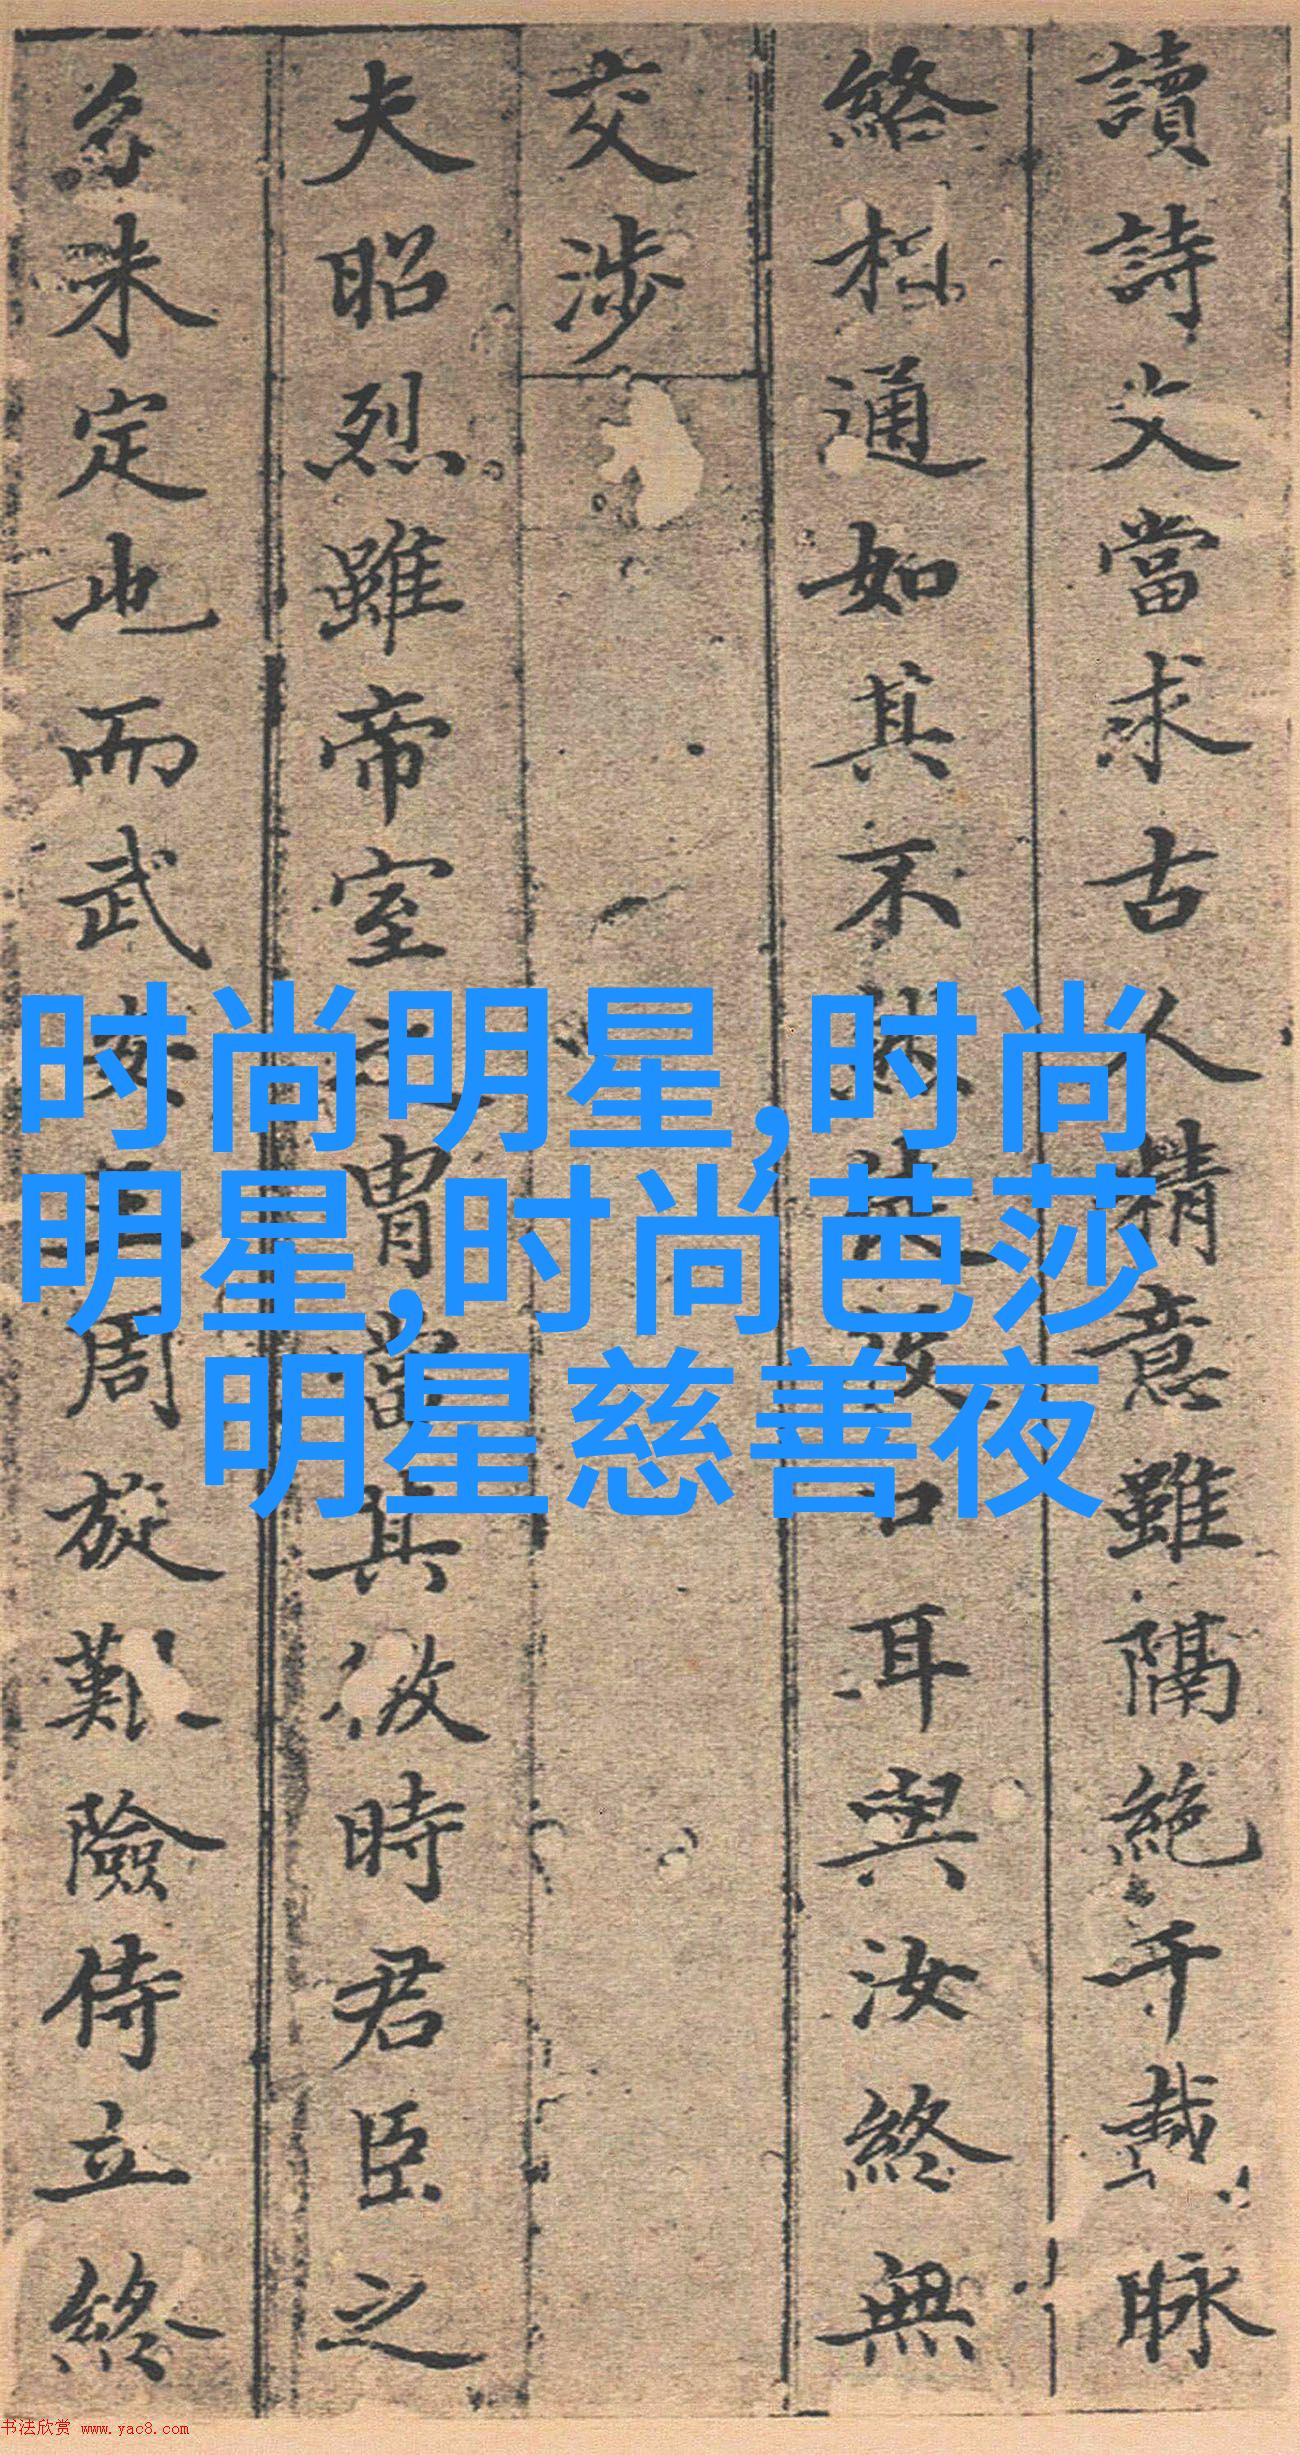 讀詩文當求古人精意雖隔絶千載脉
絡相通如其不然徒及口耳與汝終無
交涉
夫昭烈雖帝室之胄當其微時君臣之
分未定也而武安王周旋艱險侍立終
时尚明星,时尚
明星,时尚芭莎
明星慈善夜
书法欣赏 www.yac8.com